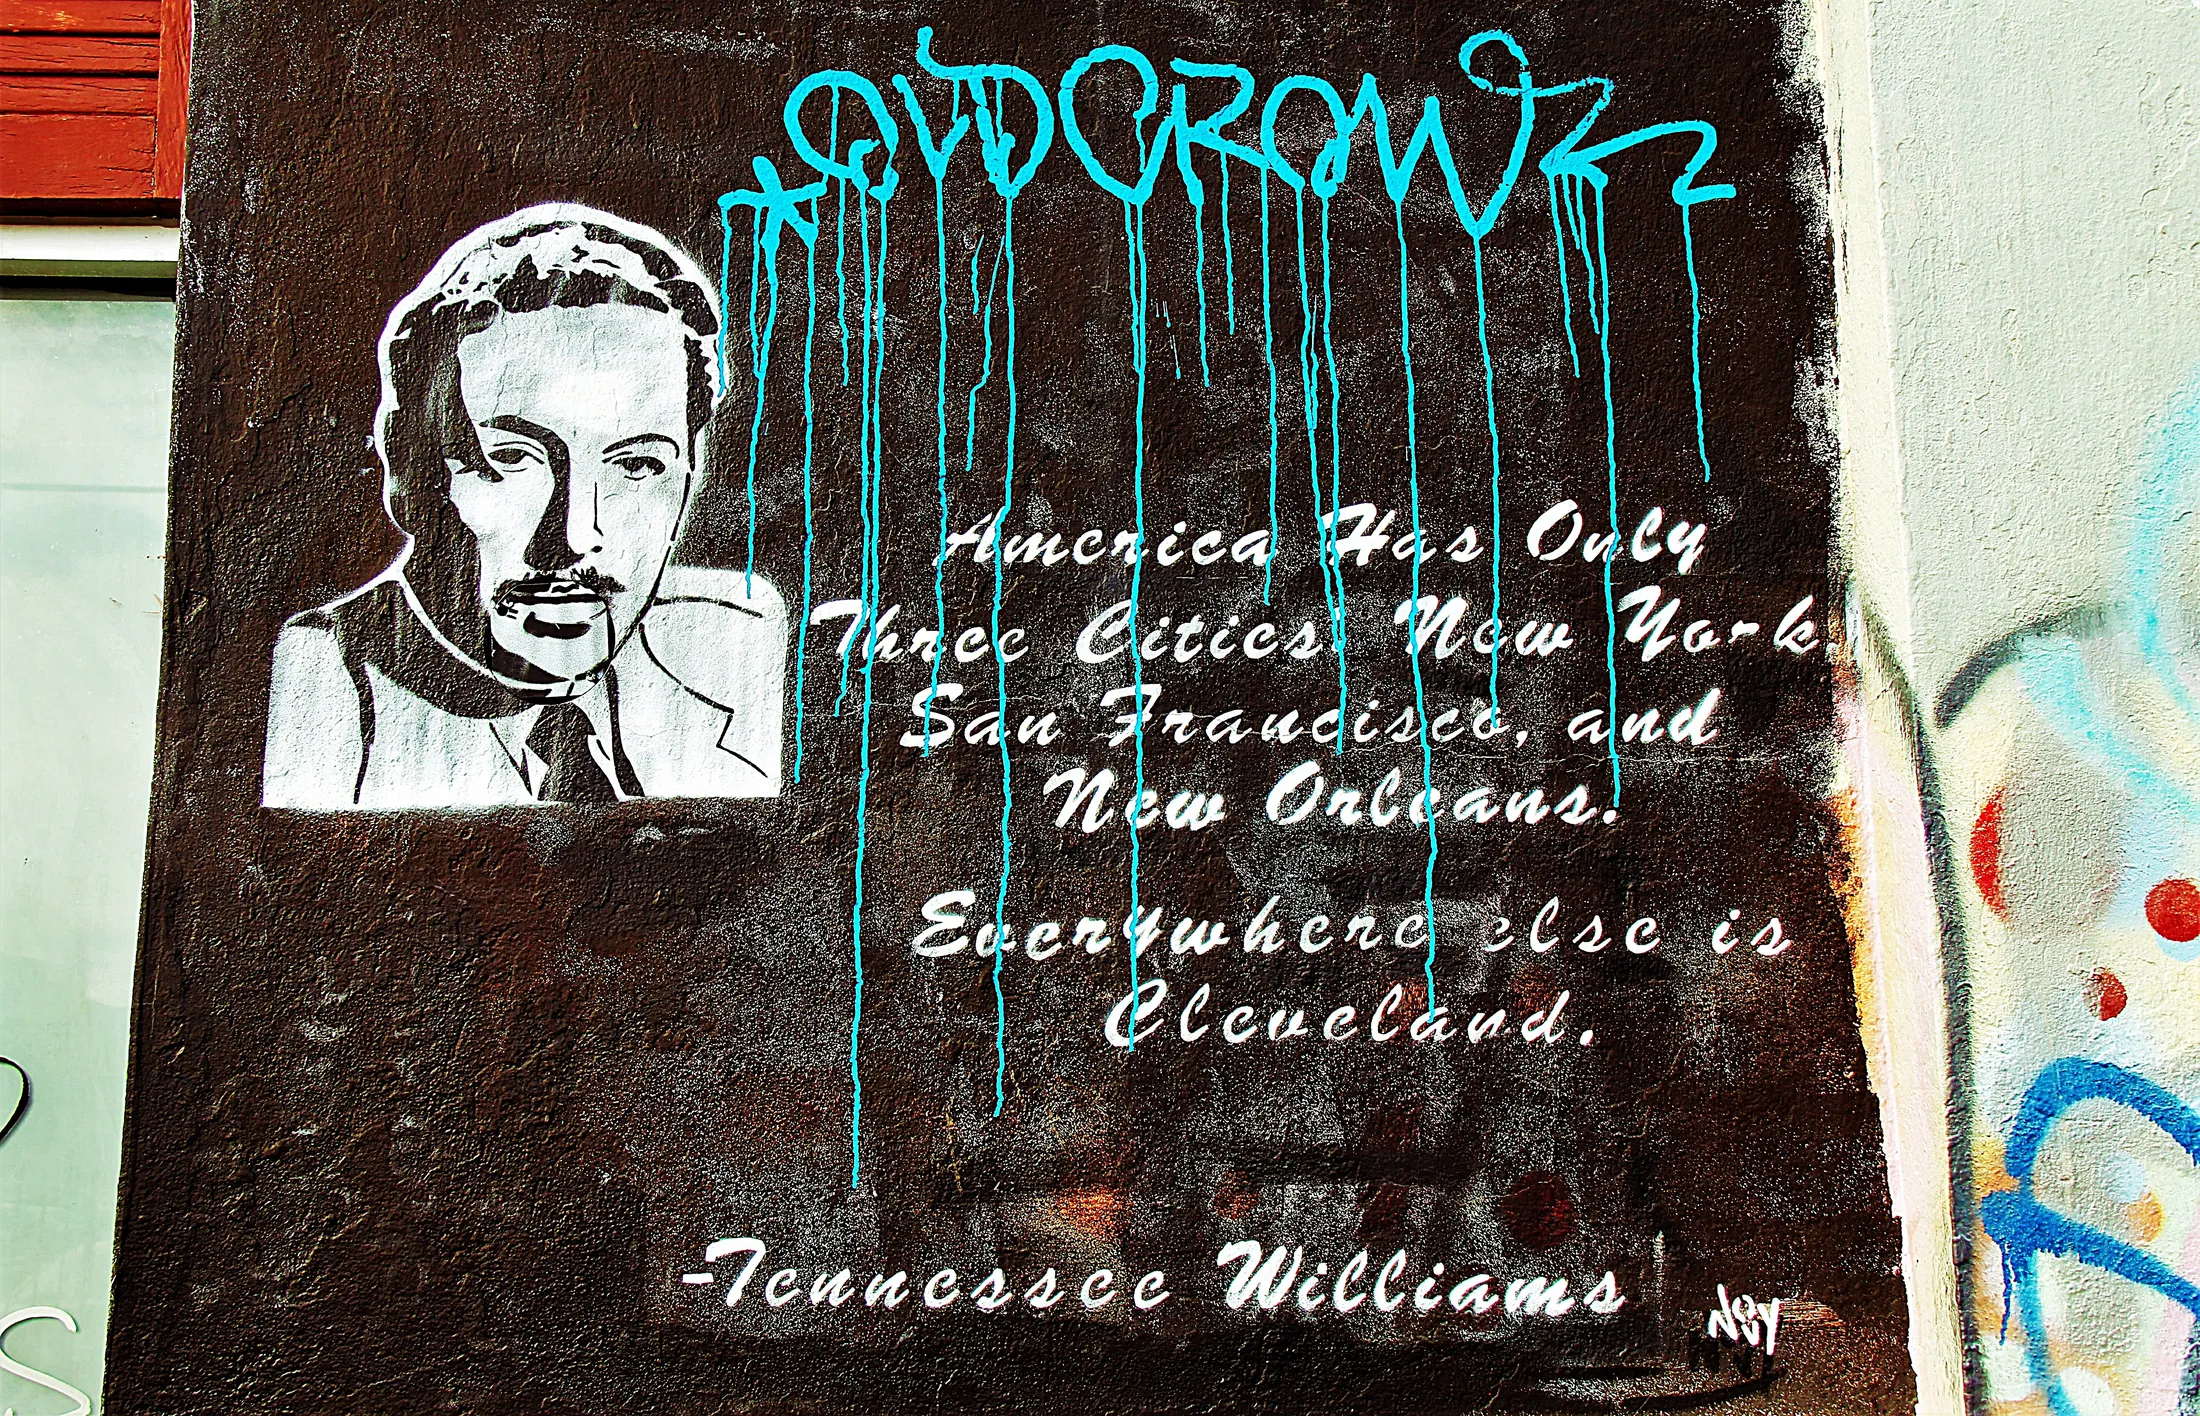 OLDCROW
America Has Only
Three Cities: New York,
San Francisco, and
New Orleans.
Everywhere else is
Cleveland.
-Tennessee Williams